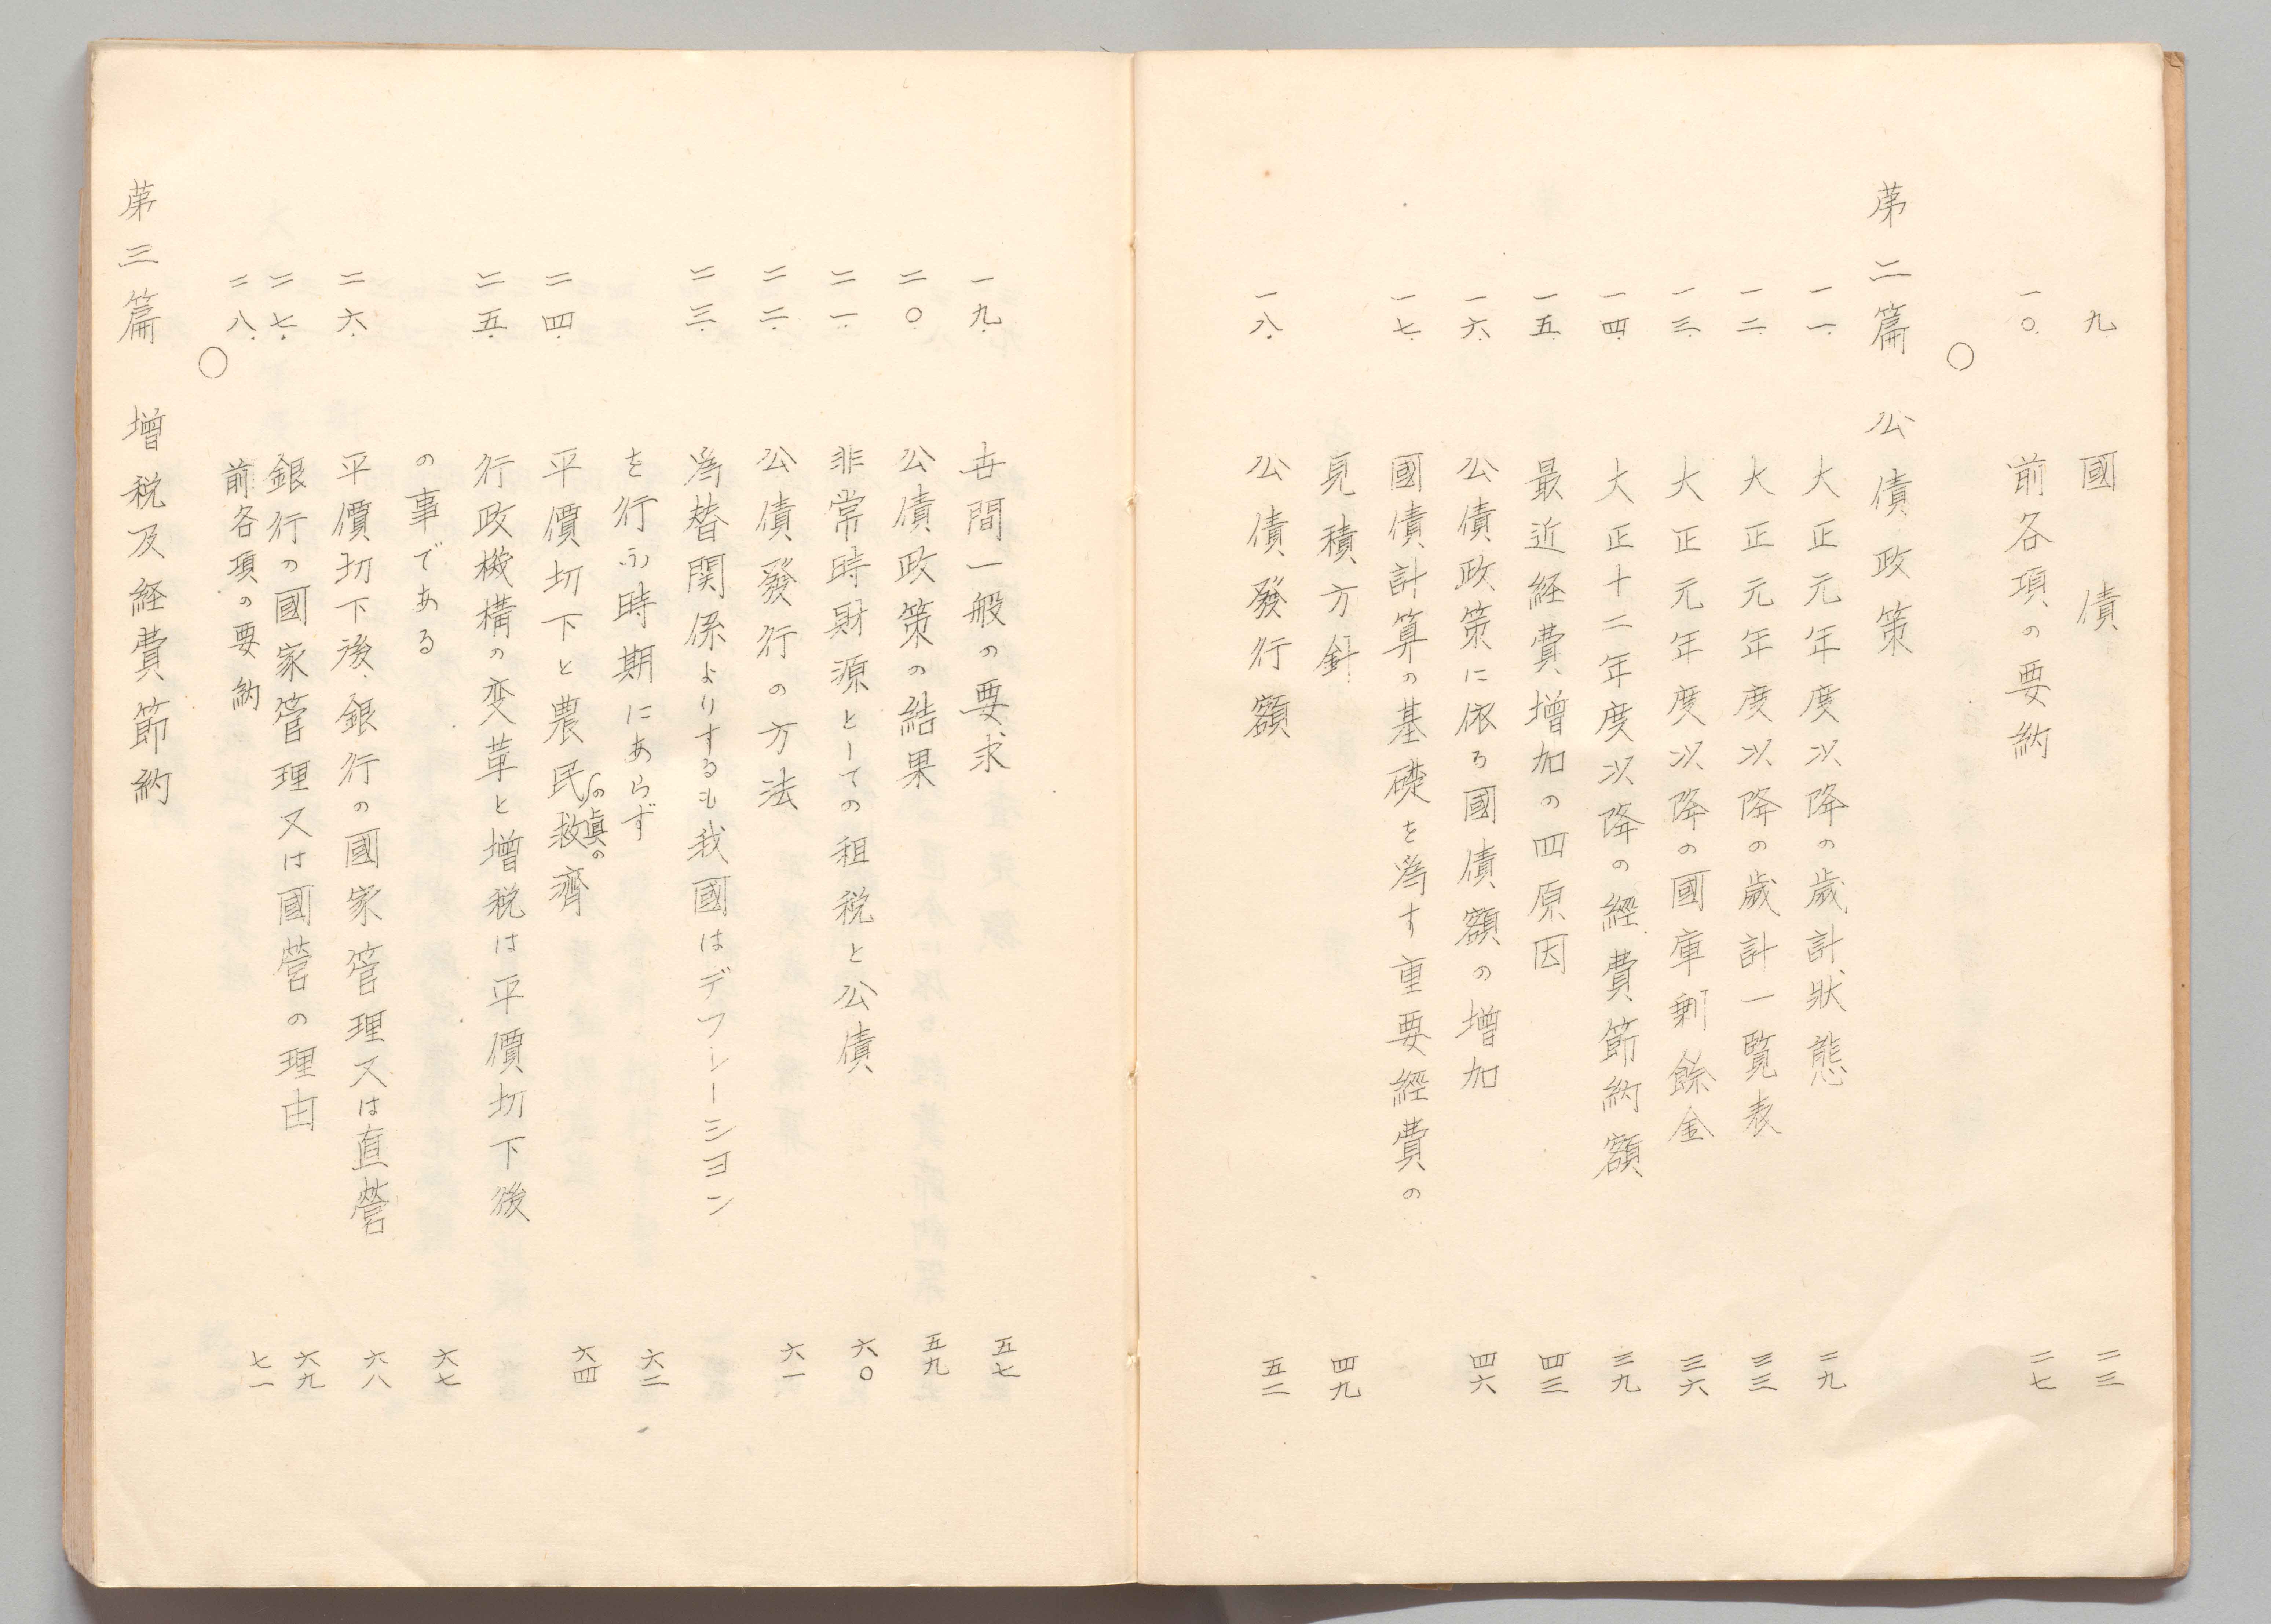 九. 國債 二三
一〇. 前各項の要約 二七
〇
第二篇 公債政策
一一. 大正元年度以降の歲計狀態 二九
一二. 大正元年度以降の歲計一覧表 三三
一三. 大正元年度以降の國庫剰餘金 三六
一四. 大正十二年度以降の經費節約額 三九
一五. 最近経費増加の四原因 四三
一六. 公債政策に依る國債額の増加 四六
一七. 國債計算の基礎を為す重要經費の
見積方針 四九
一八. 公債發行額 五二
一九. 世間一般の要求 五七
二〇. 公債政策の結果 五九
二一. 非常時財源としての租税と公債 六〇
二二. 公債發行の方法 六一
二三. 為替関係よりするも我國はデフレーシヨン
を行ふ時期にあらず 六二
二四. 平價切下と農民の眞の救濟 六四
二五. 行政機構の変革と増税は平價切下後
の事である 六七
二六. 平價切下後、銀行の國家管理又は直營 六八
二七. 銀行の國家管理又は國營の理由 六九
二八. 前各項の要納 七一
〇
第三篇 増税及経費節約